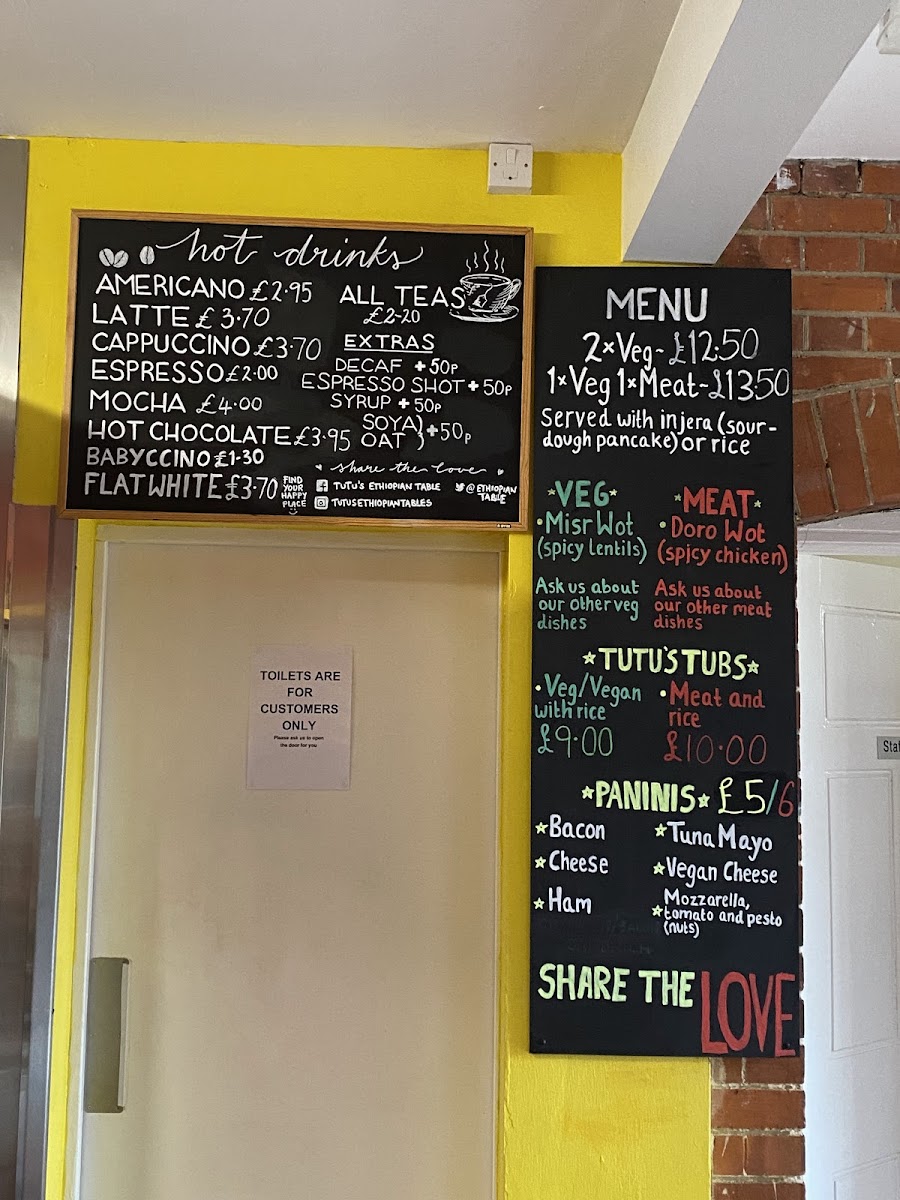 hot drinks
AMERICANO £2.95
LATTE £3.70
CAPPUCCINO £3.70
ESPRESSO £2.00
MOCHA £4.00
HOT CHOCOLATE £3.95
BABYCCINO £1.30
FLAT WHITE £3.70
FIND
YOUR
HAPPY
PLACE
ALL TEAS
£2-20
EXTRAS
DECAF +50p
ESPRESSO SHOT +50p
SYRUP +50p
SOYA
OAT } +50p
share the love
TUTU'S ETHIOPIAN TABLE
TUTUSETHIOPIANTABLES
@ETHIOPIAN
TABLE
TOILETS ARE
FOR
CUSTOMERS
ONLY
Please ask us to open
the door for you
MENU
2×Veg- £12:50
1×Veg 1×Meat-£13.50
served with injera (sour-
dough pancake) or rice
VEG
•Misr Wot
(spicy lentils)
Ask us about
our other veg
dishes
MEAT
• Doro Wot
(spicy chicken)
Ask us about
our other meat
dishes
TUTU'S TUBS
•Veg/Vegan
with rice
£9.00
•Meat and
rice
£10.00
PANINIS £5/6
Bacon
Cheese
Ham
Tuna Mayo
Vegan Cheese
Mozzarella,
tomato and pesto
(nuts)
SHARE THE LOVE